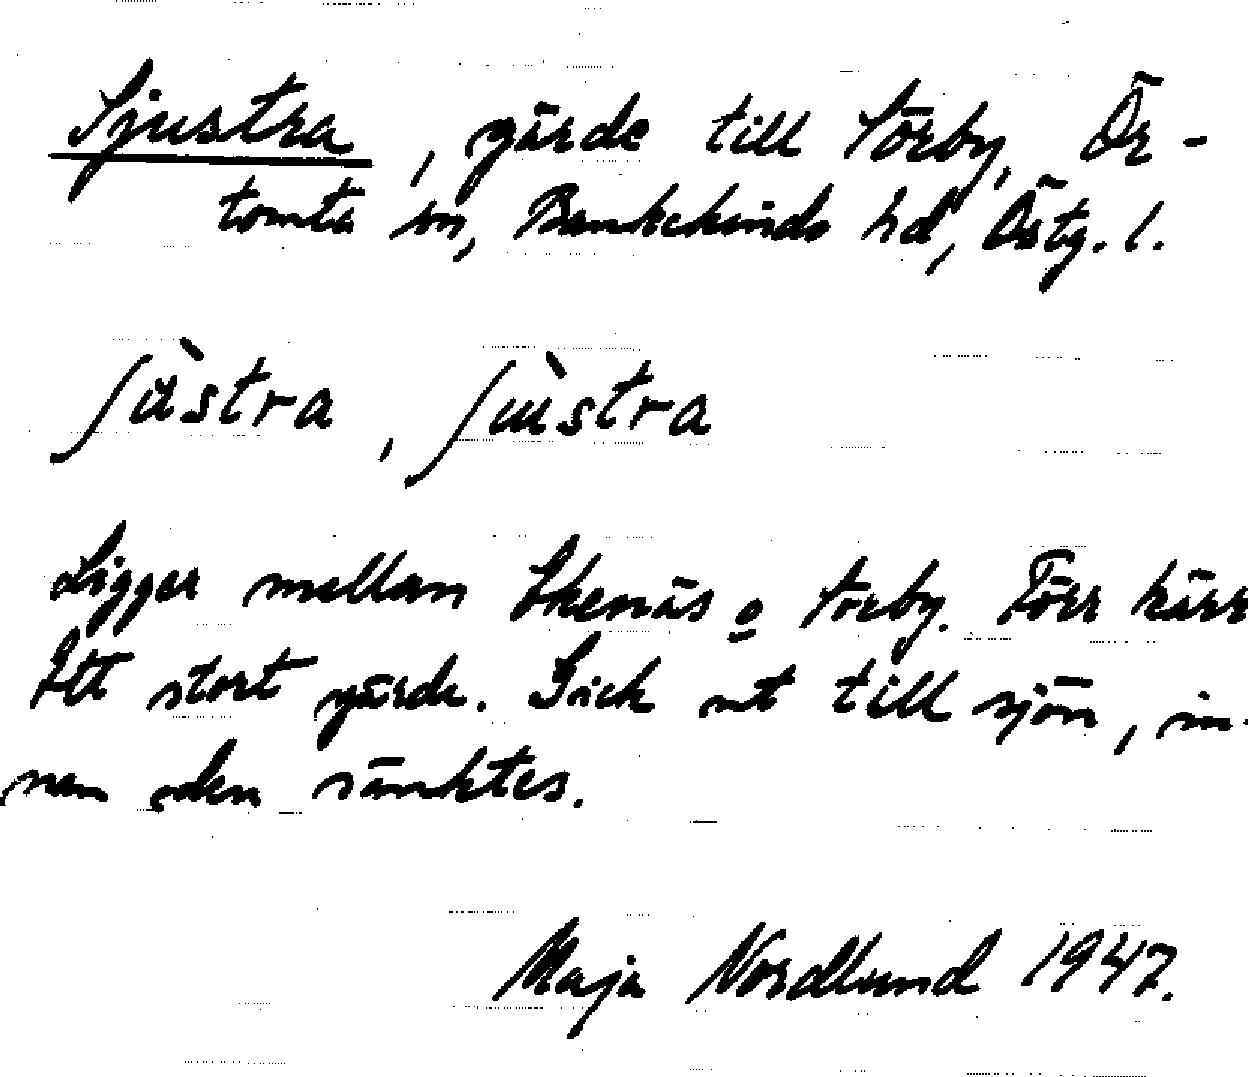 Sjustra, gärde till Törby, Ör-
tomta sn, Bankekinds hd, Östg. l.
ʃùstra, ʃùstra
Ligger mellan Ekenäs o Törby. Förr kärr
Ett stort gärde. Gick ut till sjön, in-
nan den sänktes.
Maja Nordlund 1947.